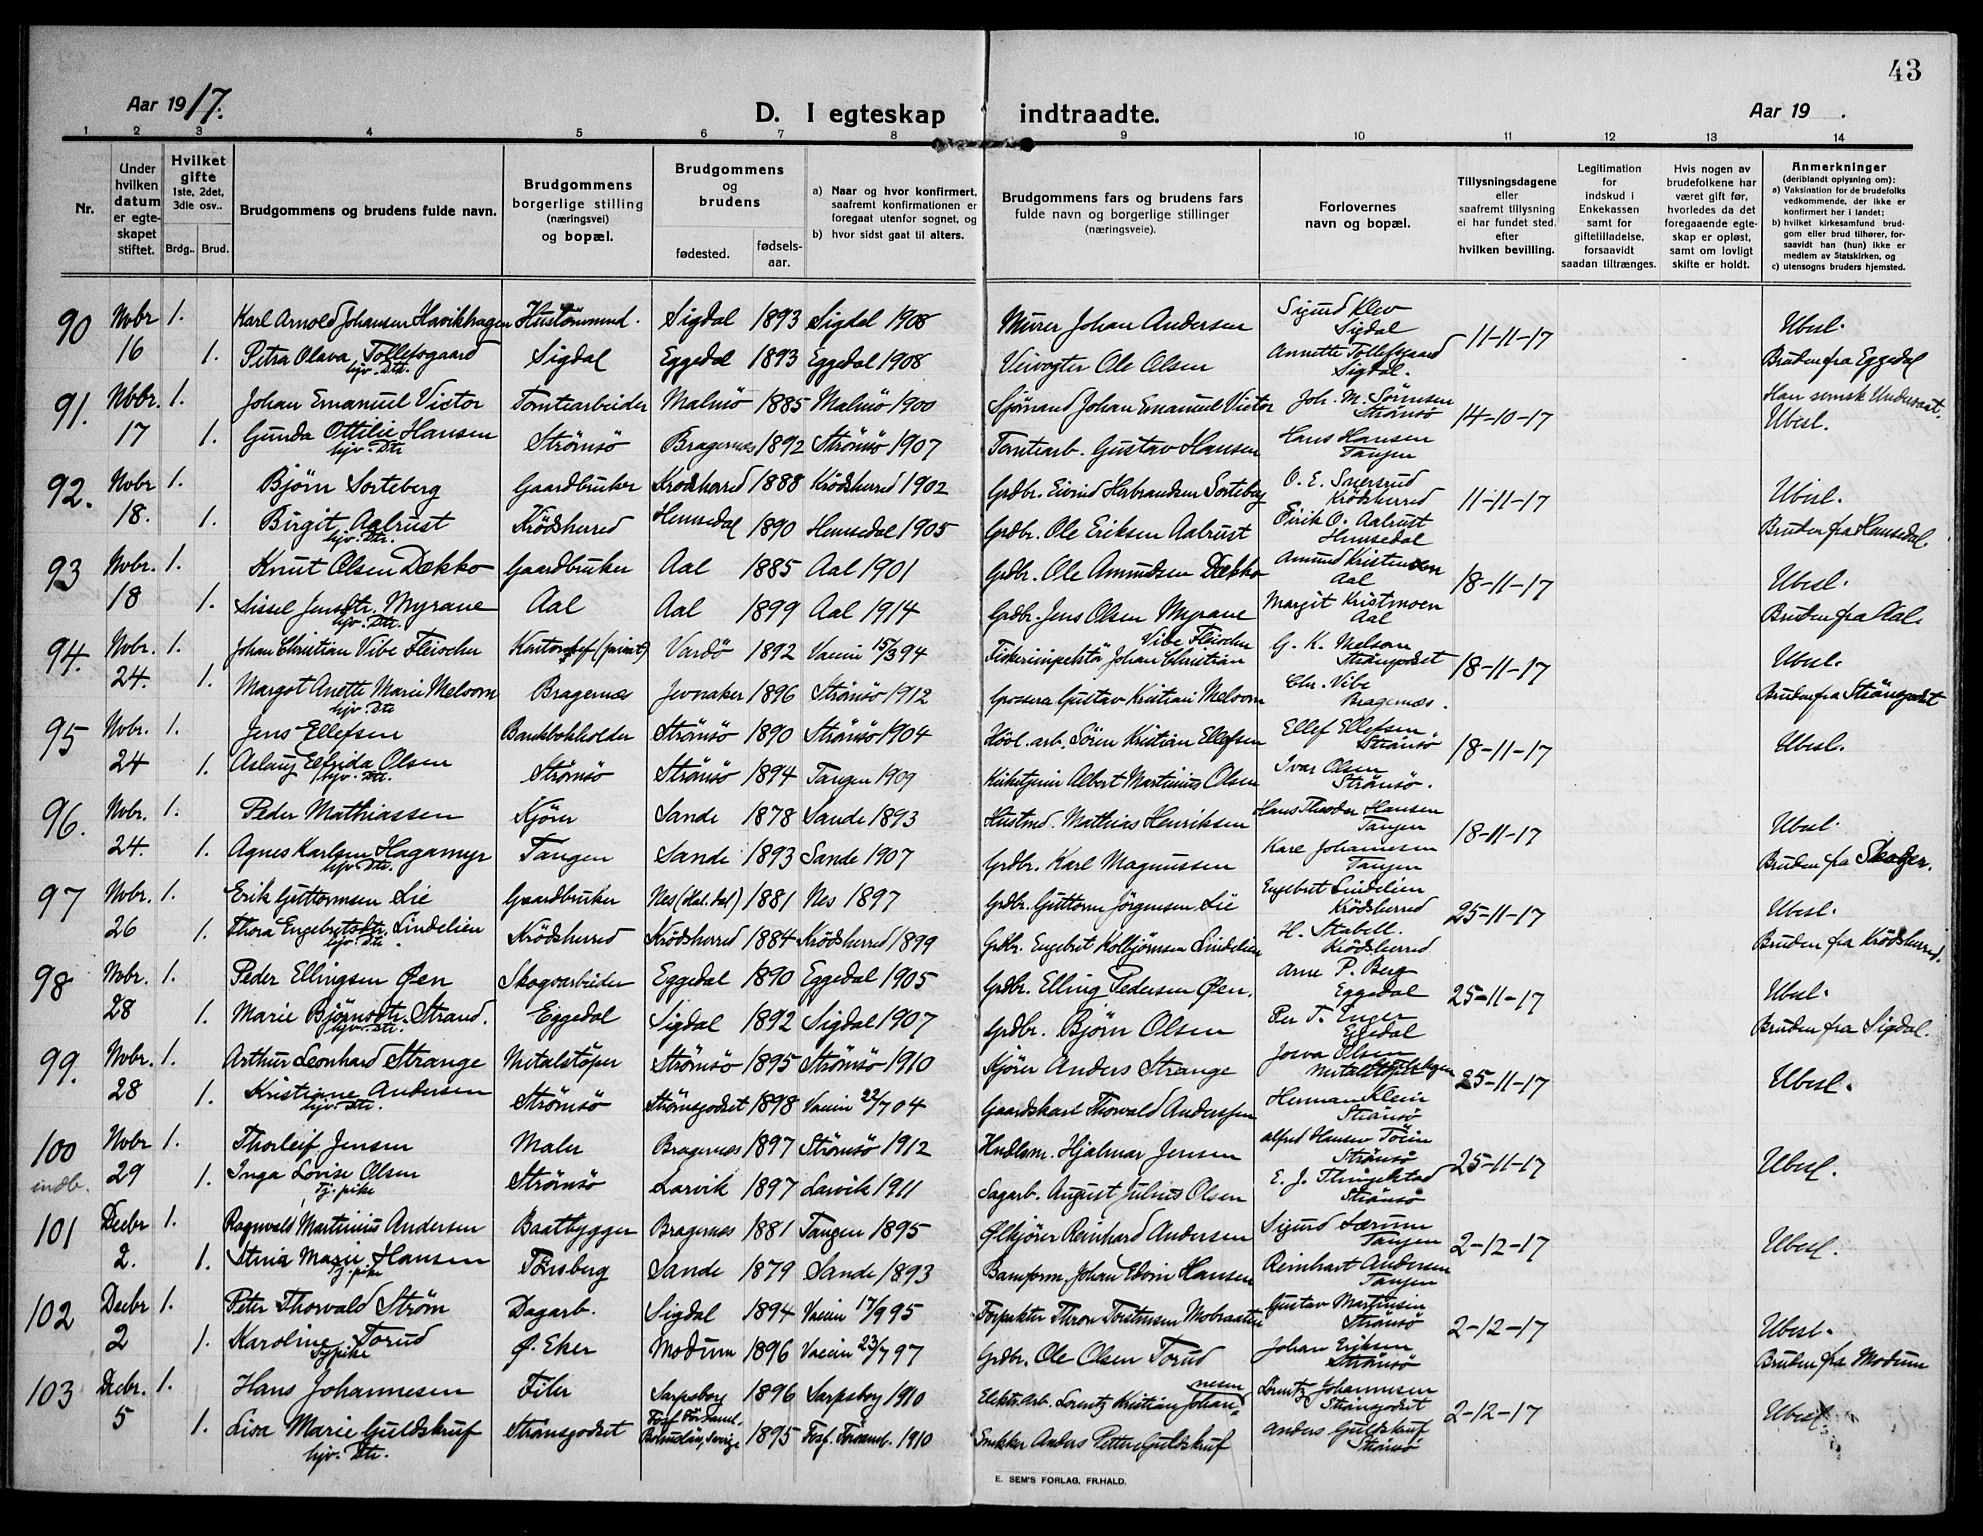 43
Aar 1917.
D. I egteskap indtraadte.
Aar 19 .
1 2 3 4 5 6 7 8 9 10 11 12 13 14
Nr.
Under hvilken datum er egte-skapet stiftet.
Hvilket gifte 1ste, 2det, 3die osv..
Brdg.. Brud.
Brudgommens og brudens fulde navn.
Brudgommens borgerlige stilling (næringsvei) og bopæl.
Brudgommens og brudens
fødested. fødsels-aar.
a) Naar og hvor konfirmert, saafremt konfirmationen er foregaat utenfor sognet, og
b) hvor sidst gaat til alters.
Brudgommens fars og brudens fars fulde navn og borgerlige stillinger (næringsveie).
Forlovernes navn og bopæl.
Tillysningsdagene eller saafremt tillysning ei har fundet sted, efter hvilken bevilling.
Legitimation for indskud i Enkekassen samt for giftetilladelse, forsaavidt saadan tiltrænges.
Hvis nogen av brudefolkene har været gift før, hvorledes da det foregaaende egte-skap er opløst, samt om lovligt skifte er holdt.
Anmerkninger (deriblandt oplysning om): a) Vaksination for de brudefolks vedkommende, der ikke er konfirmert her i landet; b) hvilket kirkesamfund brud-gom eller brud tilhører, for-saavidt han (hun) ikke er medlem av Statskirken, og c) utensogns bruders hjemsted.
90 Novbr 1. Karl Arnold Johansen Havikhagen Hustømmermd. Sigdal 1893 Sigdal 1908 Murer Johan Andersen Sigurd Klev Sigdal 11-11-17 Ubesl.
16 1. Petra Olava Tollefsgaard hjv. Dtr. Sigdal Eggedal 1893 Eggedal 1908 Veivogter Ole Olsen Annette Tollefsgaard Sigdal. Bruden fra Eggedal
91. Nvbr. 1. Johan Emanuel Victor Tomtearbeider Malmö 1885 Malmö 1900 Sjömand Johan Emanuel Victor Joh. M. Sörensen Strømsö 14-10-17 Han svensk Undersaat. Ubesl.
17 1. Gunda Ottilie Hansen hjv. Dtr Strømsö Bragernes 1892 Strömsö 1907 Tomtearb. Gustav Hansen Hans Hansen Tangen
92. Novbr 1. Bjørn Sorteberg Gaardbruker Krødsherred 1888 Krødsherred 1902 Grdbr. Eivind Herbrandsen Sorteberg O. E. Snersrud Krødsherred 11-11-17 Ubesl.
18. 1. Birgit Aalrust hjv. Dtr. Krødsherred Hemsedal 1890 Hemsedal 1905 Grdbr. Ole Eriksen Aalrust Eirik O. Aalrust Hemsedal Bruden fra Hemsedal.
93 Novbr. 1. Knut Olsen Dækko Gaardbruker Aal 1885 Aal 1901 Grdbr. Ole Amundsen Dækko Amund Kristensen Aal 18-11-17 Ubesl.
18 1. Sissel Jensdtr. Myrane hjv. Dtr. Aal Aal 1899 Aal 1914 Grdbr. Jens Olsen Myrane Margit Kristmoen Aal Bruden fra Aal.
94. Novbr. 1. Johan Christian Vibe Fleischer Kontorchef (privat) Vardö 1892 Vaccin 15/3 94 Fiskeriinspektör Johan Christian Vibe Fleischer G. K. Melsom Strömgodset 18-11-17 Ubesl.
24. 1. Margot Anette Marie Melsom hjv. Dtr Bragernæs Jevnaker 1896 Strömsö 1912 Grosserer Gustav Kristian Melsom Chr. Vibe Bragernæs. Bruden fra Strömgodset
95 Novbr. 1. Jens Ellefsen Bankbokholder Strömsö 1890 Strömsö 1904 Hövl.arb. Sören Kristian Ellefsen Ellef Ellefsen Strömsö 18-11-17 Ubesl.
24 1. Aslaug Elfrida Olsen hjv. Dtr. Strömsö Strömsö 1894 Tangen 1909 Kirketjener Albert Martinius Olsen Ivar Olsen Strömsö.
96. Novbr. 1. Peder Mathiassen Kjörer Sande 1878 Sande 1893 Hustmd. Mathias Henriksen Hans Theodor Hansen Tangen 18-11-17 Ubesl.
24. 1. Agnes Karlsen Hagamyr hjv. Dtr. Tangen Sande 1893 Sande 1907 Grdbr. Karl Magnussen Karl Johannesen Tangen Bruden fra Skoger.
97 Novbr. 1. Erik Guttormsen Lie Gaardbruker Nes (Hal.dal) 1881 Nes 1897 Grdbr. Guttorm Jörgensen Lie Engebret Lindelien Krödsherred 25-11-17 Ubesl.
26 1. Thora Engebretsdtr. Lindelien hjv. Dtr. Krödsherred Krödsherred 1884 Krödsherred 1899 Grdbr. Engebret Kolbjörnsen Lindelien H. Stabell. Krödsherred Bruden fra Krödsherred.
98 Novbr. 1. Peder Ellingsen Øen Skogsarbeider Eggedal 1890 Eggedal 1905 Grdbr. Elling Pedersen Øen. Arne P. Berg Eggedal 25-11-17 Ubesl.
28 1. Marie Bjørnsdtr. Strand. hjv. Dtr. Eggedal Sigdal 1892 Sigdal 1907 Grdbr. Bjørn Olsen Per T. Enger Eggedal Bruden fra Sigdal.
99. Novbr. 1. Arthur Leonhard Strange Metalstöper Strömsö 1895 Strömsö 1910 Kjörer Anders Strange Josva Olsen Metalstöper 25-11-17 Ubesl.
28 1. Kristiane Andersen hjv. Dtr. Strömsö Strömsgodset 1898 Vaccin 22/7 04 Gaardskarl Thorvald Anderssen Herman Klein Strömsö
100 indb. Novbr 1. Thorleif Jensen Maler Bragernæs 1897 Strömsö 1912 Hndlsm. Hjalmar Jensen Alfred Hansen Strömsö 25-11-17 Ubesl.
29 1. Inga Lovise Olsen Tj. pike Strömsö Larvik 1897 Larvik 1911 Sagarb. August Julius Olsen E. J. Strömsö
101 Decbr 1. Ragnvald Martinius Andersen Baatbygger Bragernes 1881 Tangen 1895 Ølkjörer Reinhard Andersen Sigurd Særum Tangen 2-12-17 Ubesl.
2. 1. Stina Marie Hansen Tj. pike Tönsberg Sande 1879 Sande 1893 Baneform. Johan Edvin Hansen Reinhart Andersen Tangen
102 Decbr 1. Peter Thorvald Ström Dagarb. Sigdal 1894 Vaccin 17/9 95 Forpakter Thron Torstensen Mobraaten Gustav Martinsen Strömsö 2-12-17 Ubesl.
2 1. Karoline Torud Tj pike Ø. Eker Modum 1896 Vaccin 23/7 97 Grdbr. Ole Olsen Torud Johan Eriksen Strömsö Bruden fra Modum
103 Decbr. 1. Hans Johannesen Filer Sarpsborg 1896 Sarpsborg 1910 Elektr.arb. Lorentz Kristian Johannesen Lorentz Johannesen Strömgodset 2-12-17 Ubesl.
5 1. Lisa Marie Guldskruf hjv. Dtr. Strömsgodset Foss Församl. Bohuslän, Sverige 1895 Foss Församl. 1910 Snekker Anders Petter Guldskruf Anders Guldskruf Strömsö
E. SEM'S FORLAG, FR.HALD.